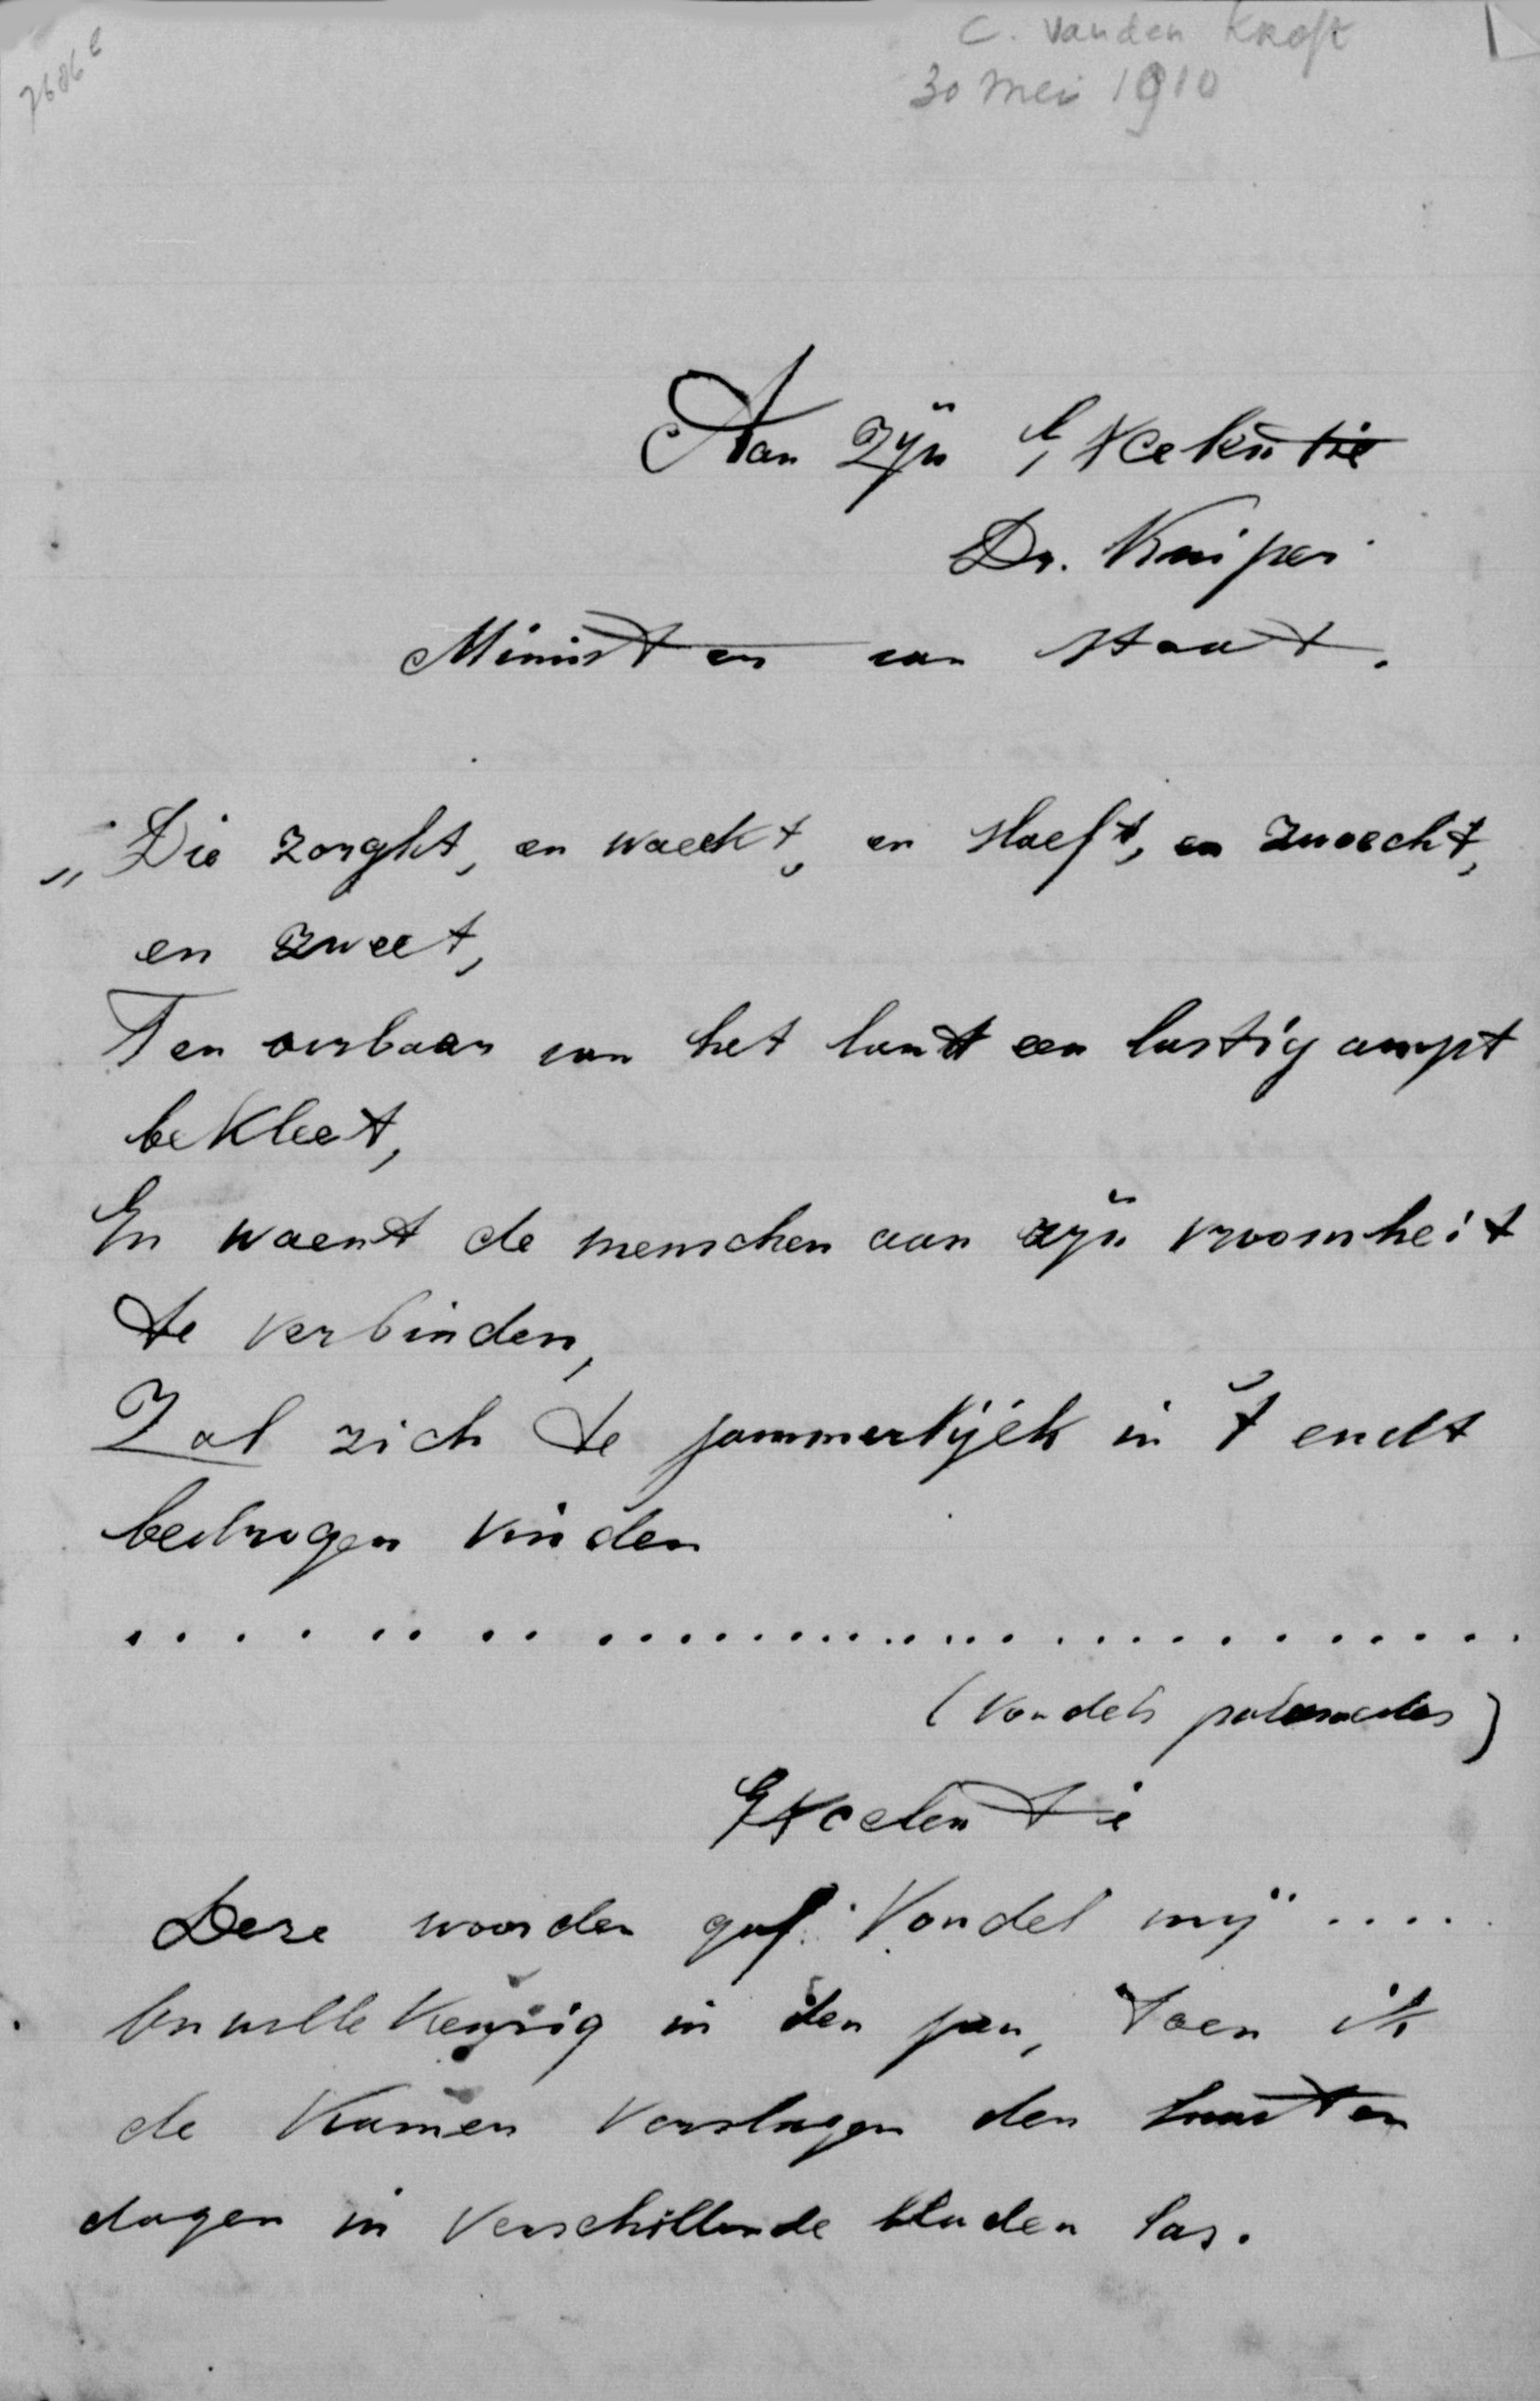 7686 e
C. van den Kroft
30 Mei 1910
Aan Zijn Excelentie
Dr. Kuiper
Minister van staat.
„Die zorght, en waeckt, en slaeft, en zwoecht,
en zweet,
Ten oirbaar van het landt een lastig ampt
bekleet,
En waent de menschen aan zijn vroomheit
te verbinden,
Zal zich te jammerlijck in 't endt
bedrogen vinden
. . . . . . . . . . . . . . . . . . . . . . . . . . . . . .
(Vondels palamedes)
Excelentie
Deze woorden gaf Vondel mij ....
in den pen, toen ik
de Kamer verslagen den laasten
dagen in verschillende bladen las.